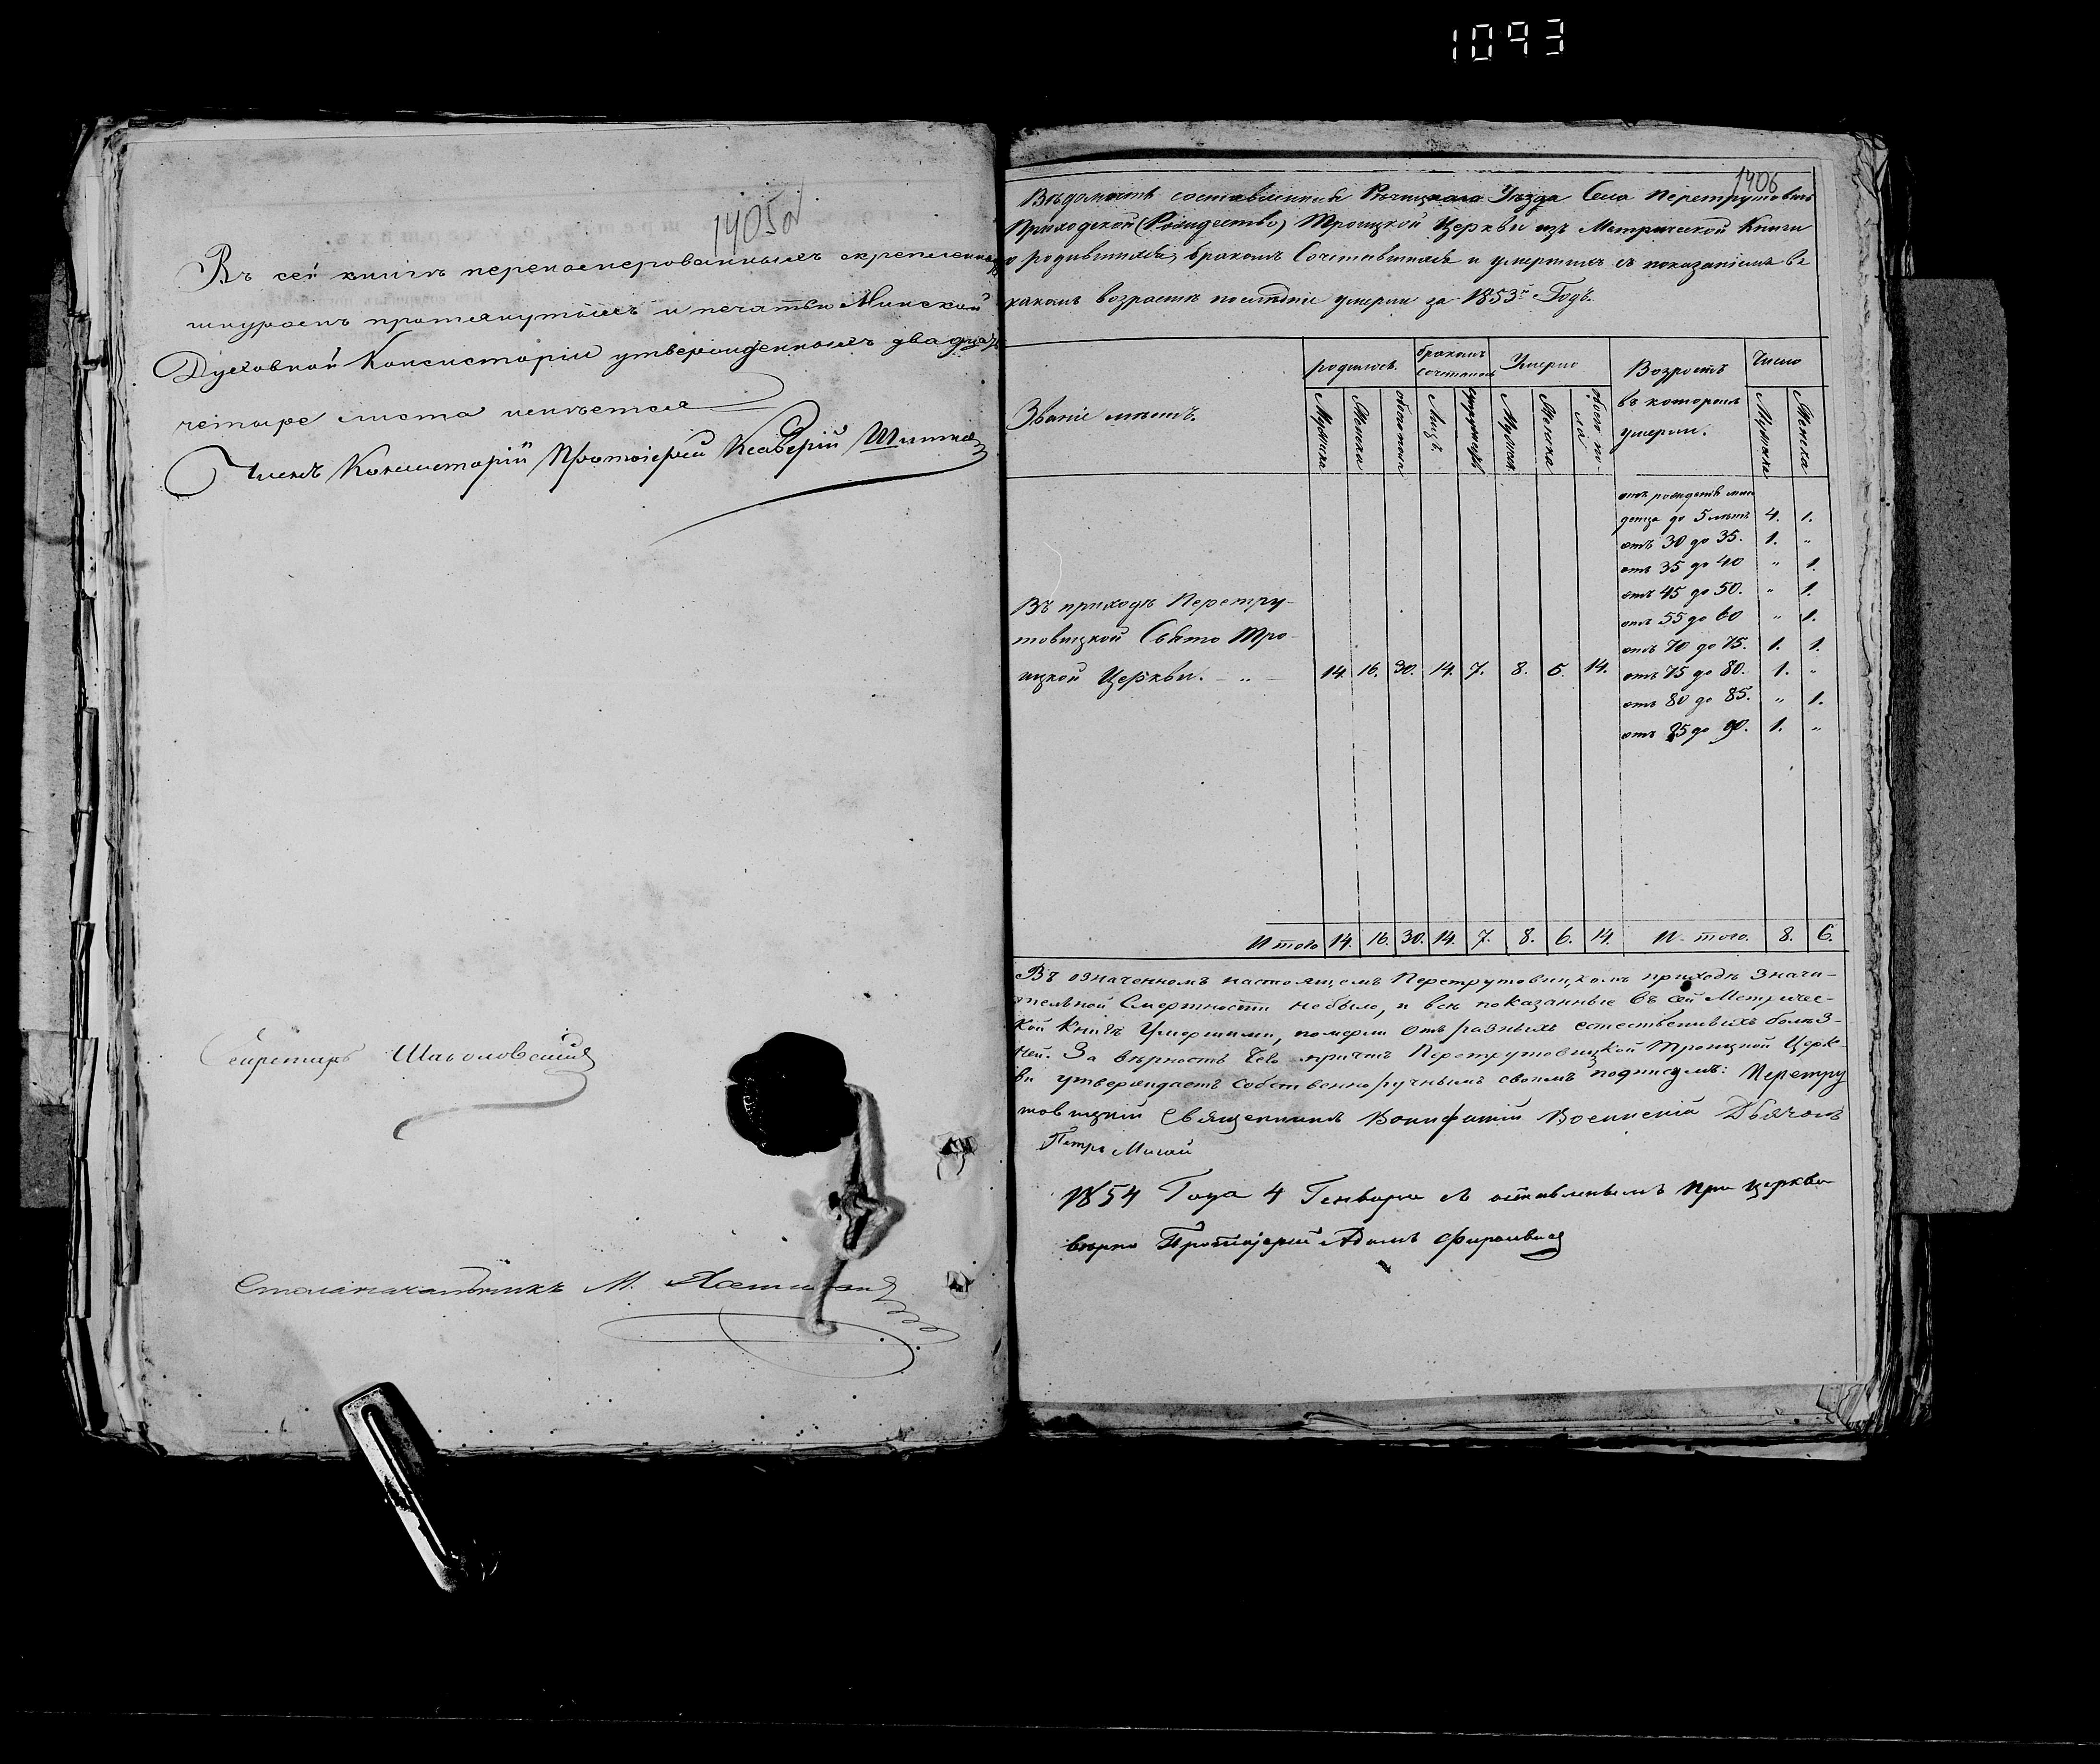 1093
1405об
Въ сей книгѣ переномерованныхъ скрепленныхъ
шнуромъ протянутыхъ и печатью Минской
Духовной Консисторіи утвержденныхъ двадцать
четыре листа имѣется
Членъ Консисторіи Протоіерей Ксаверій
Секретарь
Столоначальникъ М.
1406
Вѣдомость составленная Рѣчицкаго Уѣзда Села Перетрутовичъ
Приходской (Рождество) Троицкой Церкви изъ Метрической Книги
о родившихся, бракомъ Сочетавшихся и умершихъ съ показаніемъ въ
какомъ возрастѣ послѣдніе умерли за 1853й Годъ.
Званіе мѣстъ. родилось. бракомъ сочеталось Умерло Возрастъ въ которомъ умерли. Число
Мужска Женска обоего пола Лицъ Супружествъ Мужска Женска обоего пола Мужска Женска
отъ рожденія мла
денца до 5 лѣтъ 4. 1.
отъ 30 до 35. 1. "
отъ 35 до 40 " 1.
отъ 45 до 50. " 1.
отъ 55 до 60 " 1.
отъ 70 до 75. 1. 1.
отъ 75 до 80. 1. "
отъ 80 до 85. " 1.
отъ 85 до 90. 1. "
Въ приходѣ Перетру-
товицкой Свято Тро-
ицкой Церкви. - " - 14. 16. 30. 14. 7. 8. 6. 14.
Итого 14. 16. 30. 14. 7. 8. 6. 14. И-того. 8. 6.
Въ означенномъ настоящемъ Перетрутовицкомъ приходѣ Значи-
тельной Смертности небыло, и всѣ показанные въ сей Метричес-
кой Книгѣ Умершими, померли отъ разныхъ естественныхъ болѣз-
ней. За вѣрность чего причтъ Перетрутовицкой Троицкой Церк-
ви утверждаетъ собственноручнымъ своимъ подписомъ: Перетру
товицкій Священникъ Вонифатій Дьячокъ
Петръ
1854 Года 4 Генваря съ оставленнымъ при церкви
вѣрно Протоіерей Адамъ